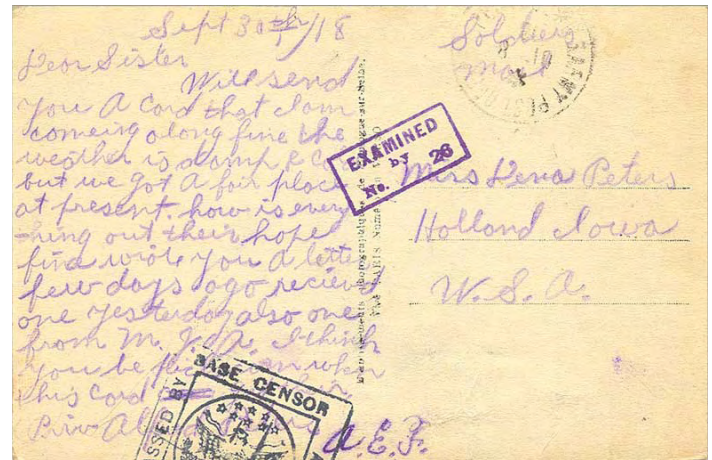 Sept 30th/18
Dear Sister
Will send
you A Card that I am
comeing along fine the
weather is damp &
but we got A fair place
at present. how is every
thing out their hope
fine wrote you A letter
few days ago recieved
one yesterday also one
from M. I think
you be when
this Card
Priv
A.E.F.
Soldiers
Mail
ARMY POST
EXAMINED
by
No. 26
Mrs Lena Peters
Holland Iowa
U.S.A.
PARIS
PASSED BY
BASE CENSOR